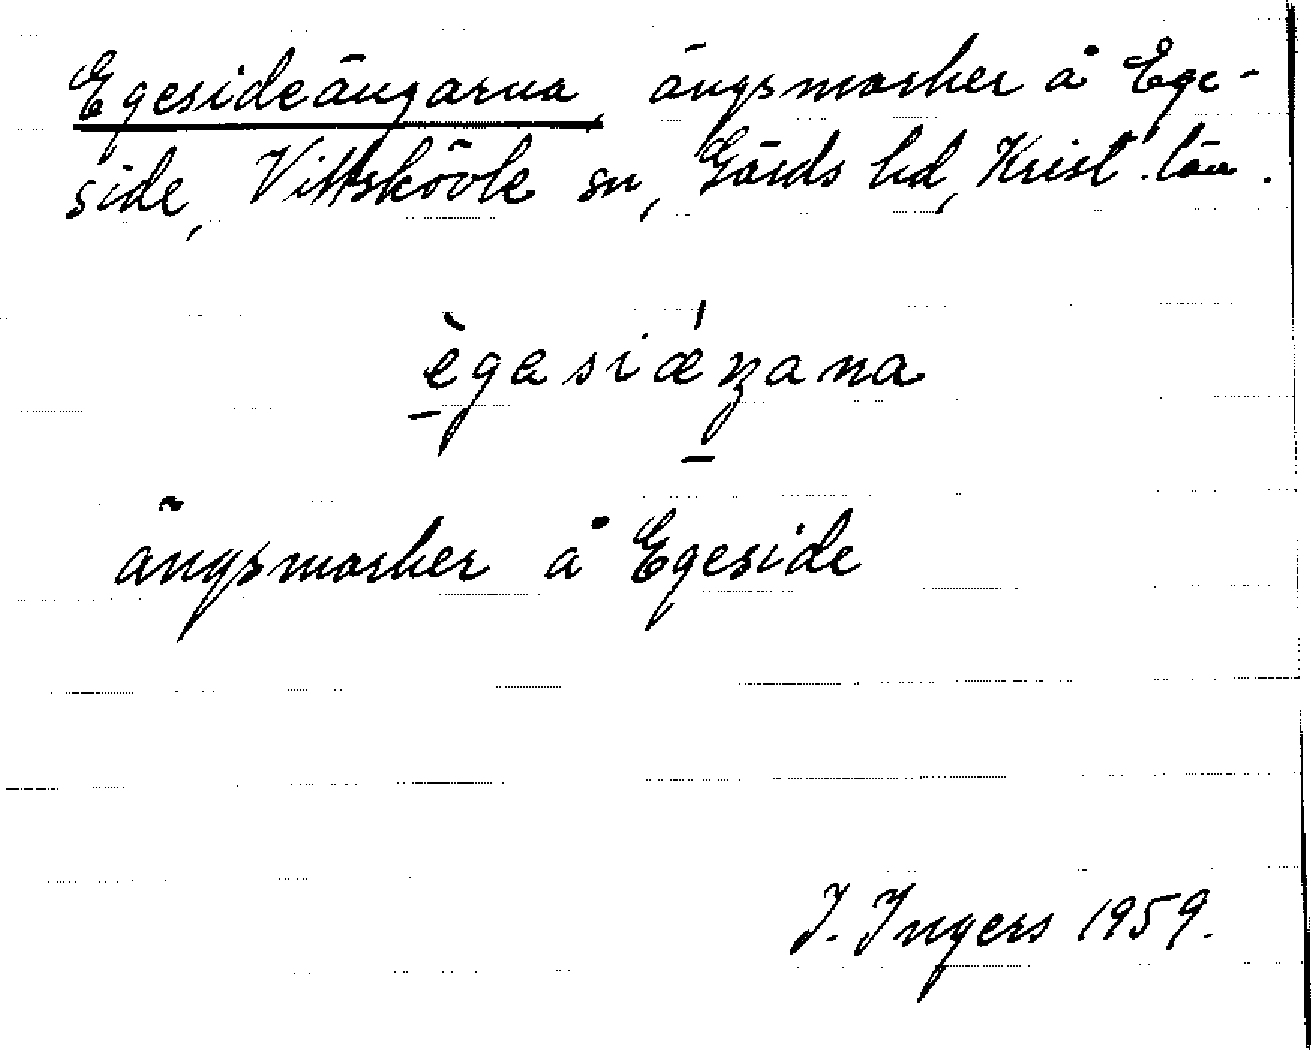 Egesideängarna, ängsmarker å Ege-
side, Vittskövle sn, Gärds hd, Krist. län.
ègasiǽŋana
ängsmarker å Egeside
I. Ingers 1959.